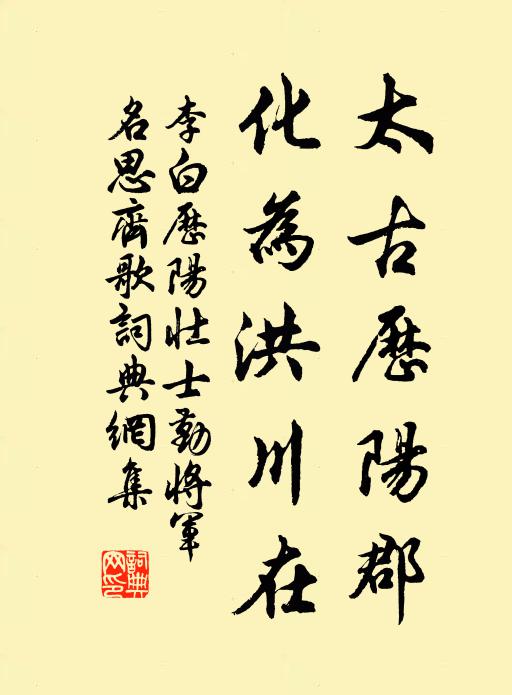 太古歷陽郡
化為洪川在
李白歷陽壯士勤將軍
名思齊歌詞典網集
詞典网印